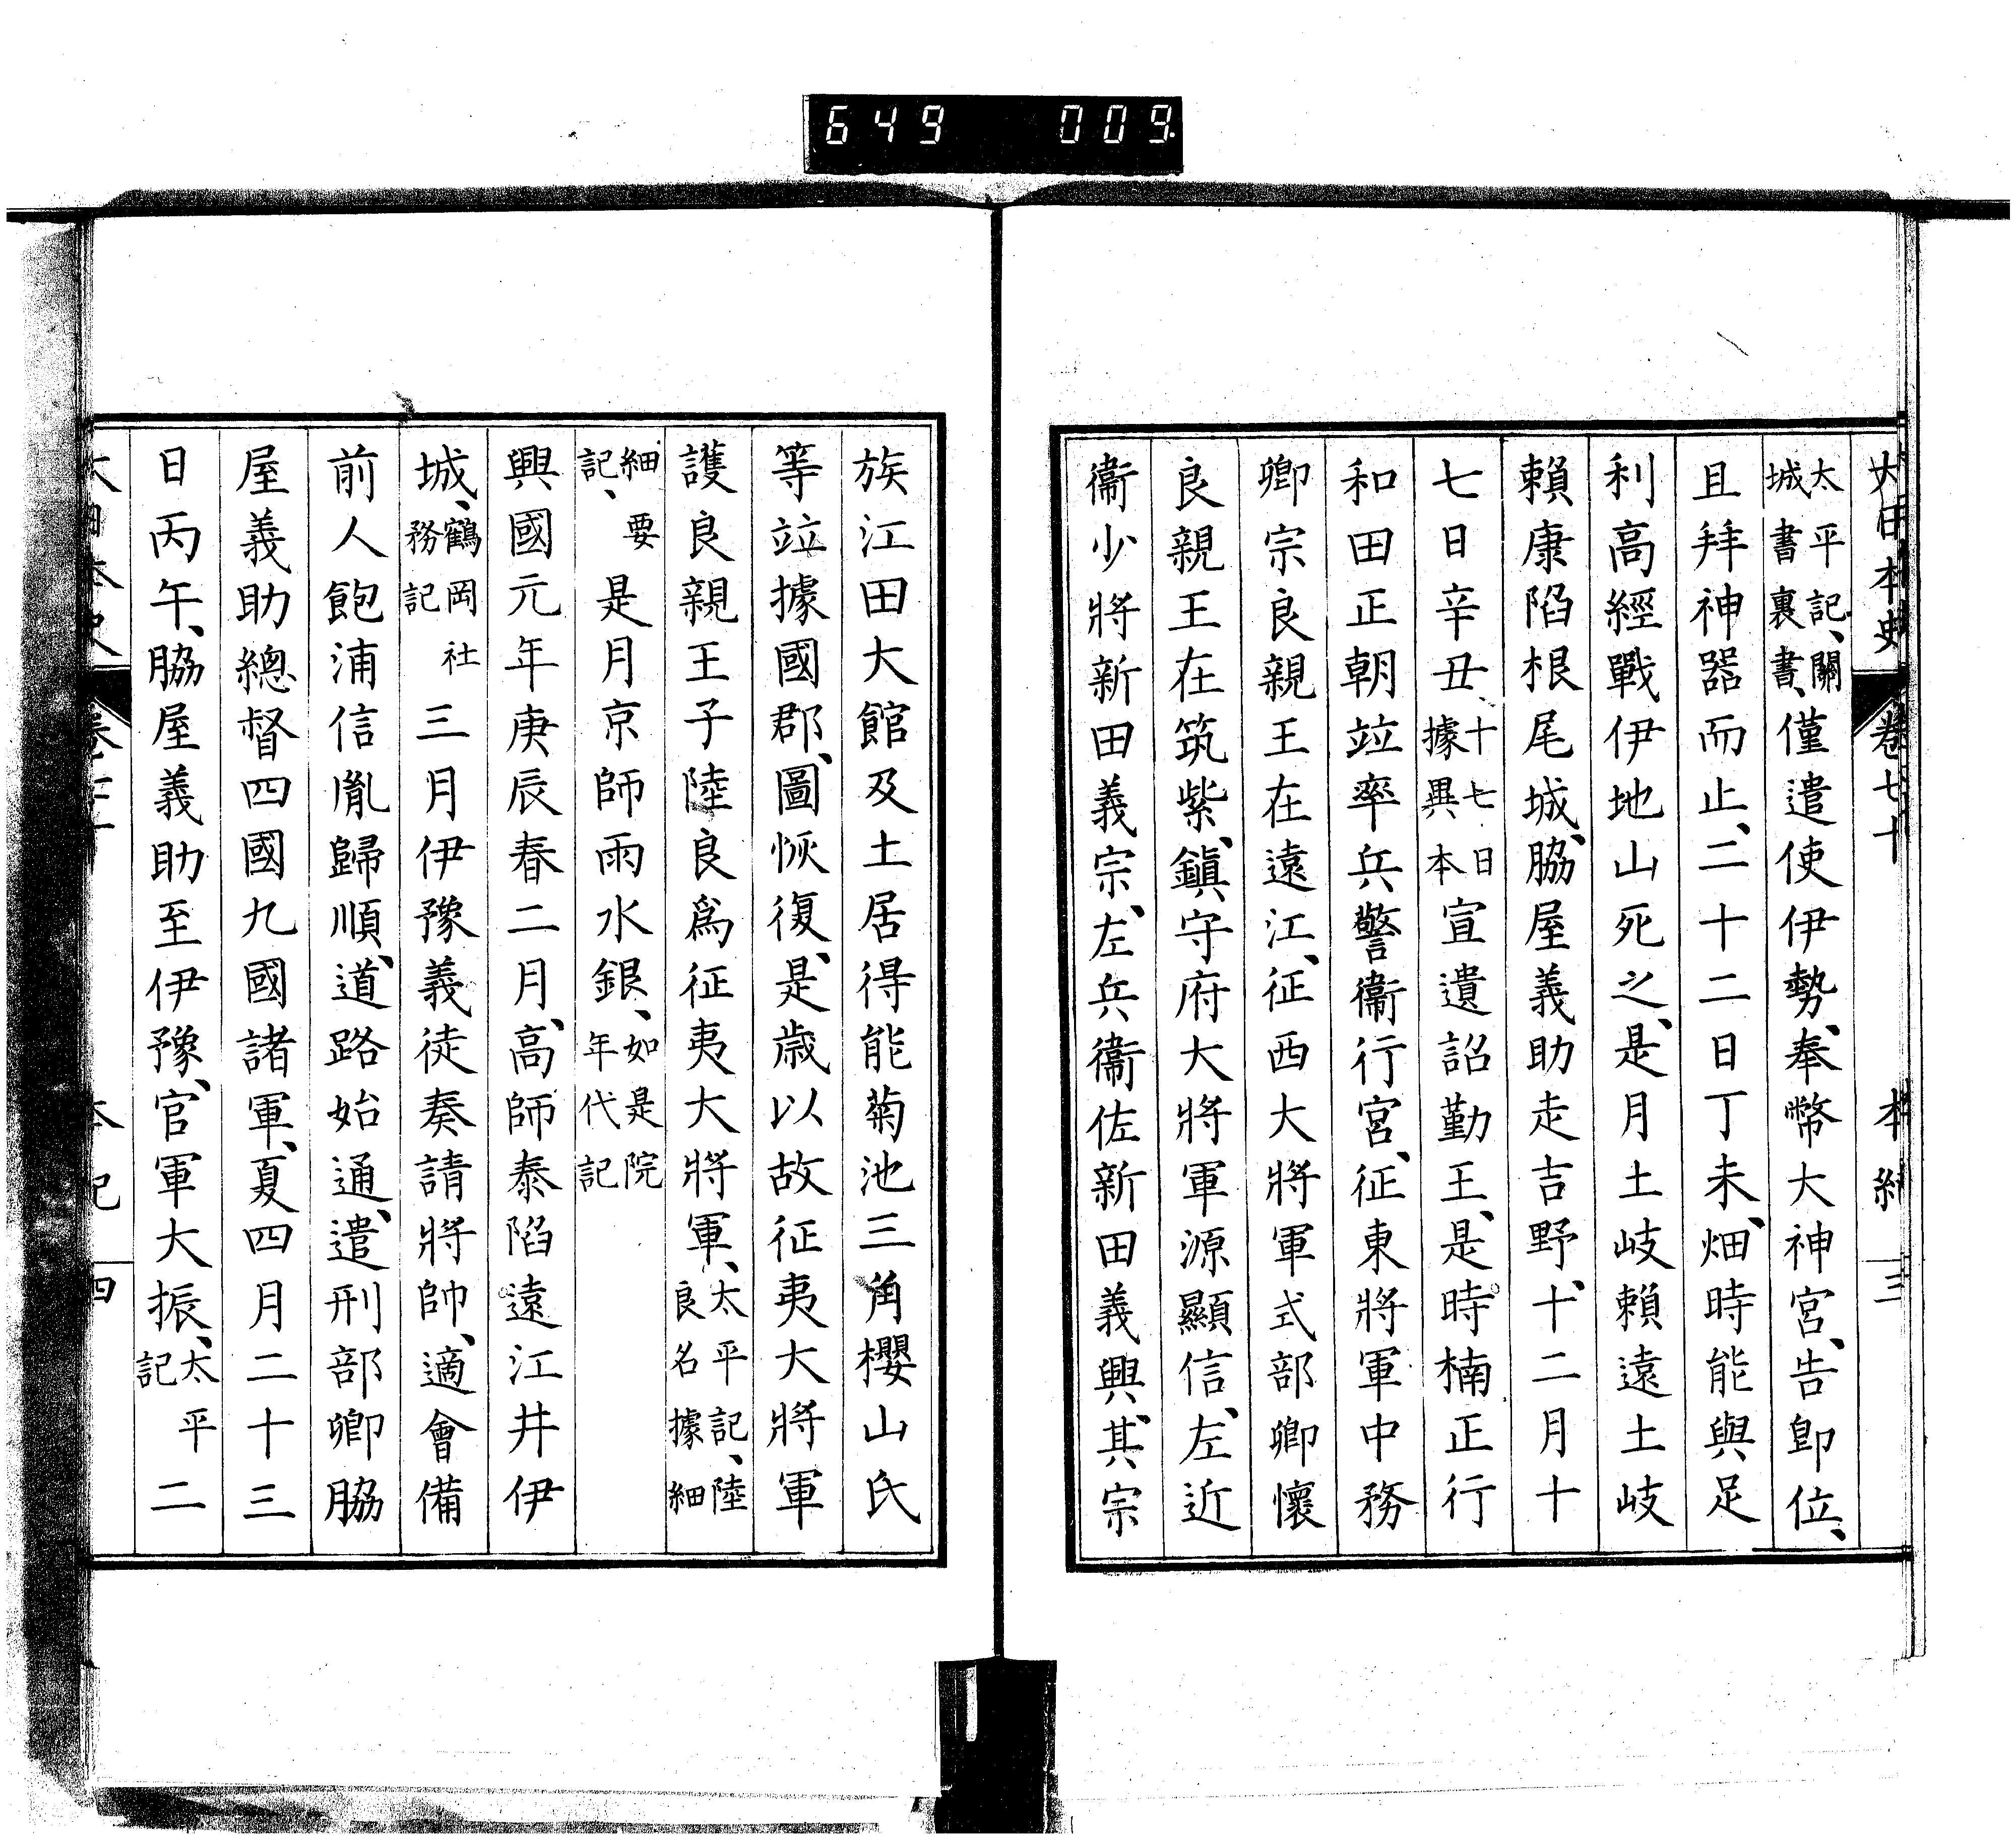 649 009
大日本史 卷七十 本紀 三
太平記、關城書裏書、僅遣使伊勢、奉幣大神宮、告卽位、
且拜神器而止、二十二日丁未、畑時能與足
利高經戰伊地山死之、是月土岐賴遠土岐
賴康陷根尾城、脇屋義助走吉野、十二月十
七日辛丑、十七日據異本宣遺詔勤王、是時楠正行
和田正朝竝率兵警衞行宮、征東將軍中務
卿宗良親王在遠江、征西大將軍式部卿懷
良親王在筑紫、鎭守府大將軍源顯信、左近
衞少將新田義宗、左兵衞佐新田義興、其宗
族江田大館及土居得能菊池三角櫻山氏
等竝據國郡、圖恢復、是歲以故征夷大將軍
護良親王子陸良爲征夷大將軍、太平記、陸良名據細
細要記、是月京師雨水銀、如是院年代記
興國元年庚辰春二月、高師泰陷遠江井伊
城、鶴岡社務記三月伊豫義徒奏請將帥、適會備
前人飽浦信胤歸順、道路始通、遣刑部卿脇
屋義助總督四國九國諸軍、夏四月二十三
日丙午、脇屋義助至伊豫、官軍大振、太平記二
大日本史 卷七十 本紀 四